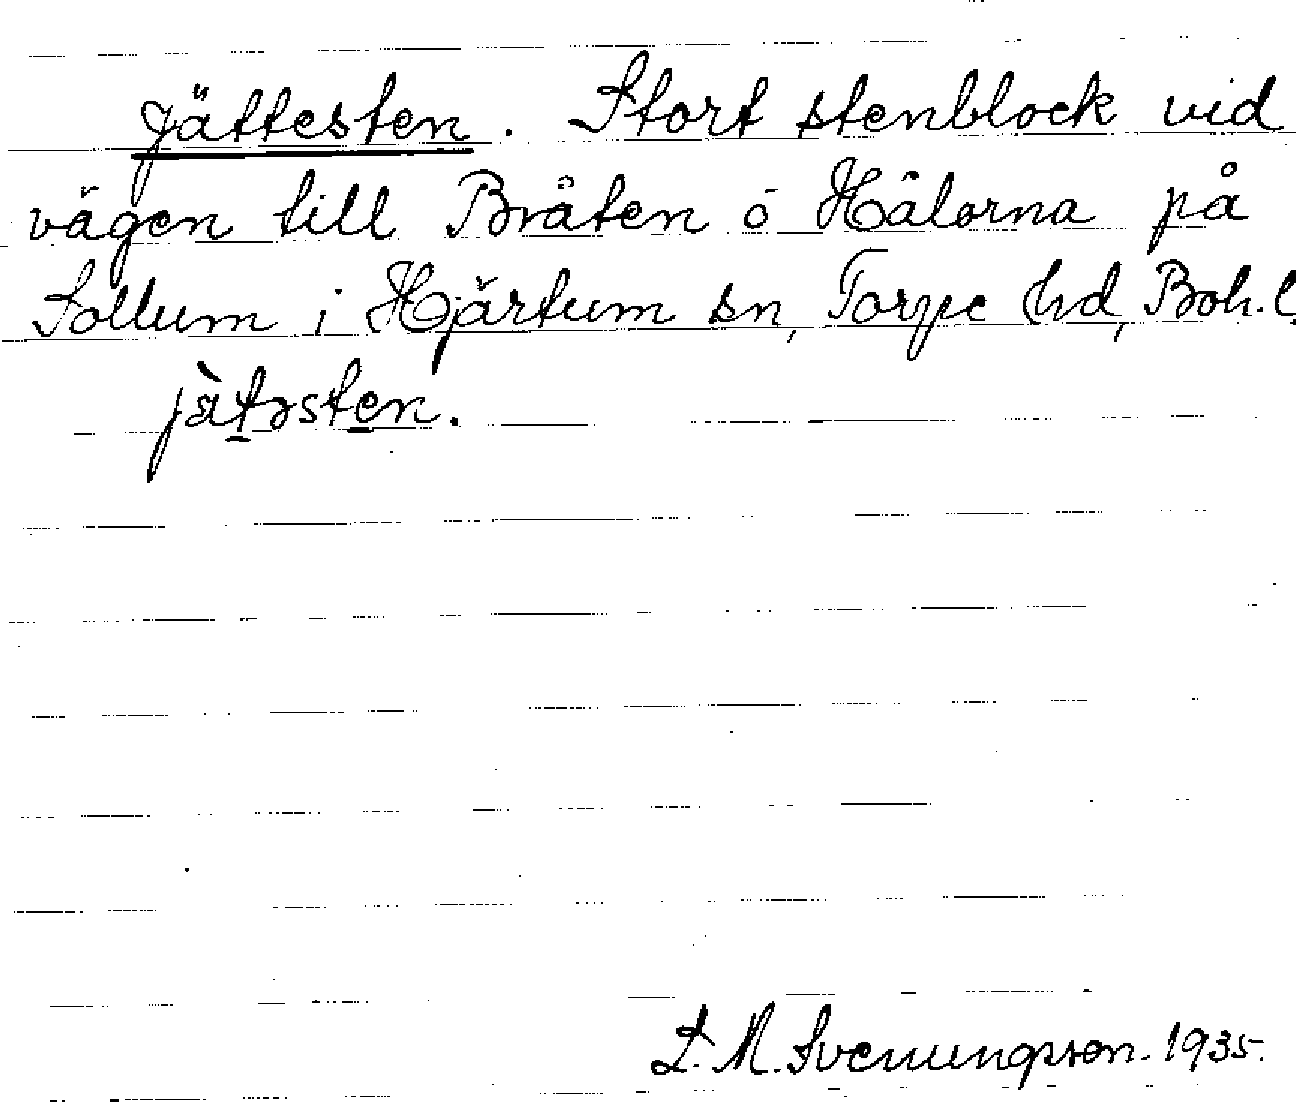 jättesten. Stort stenblock vid
vägen till Bråten o Hålorna på
Sollum i Hjärtum sn, Torpe hd, Boh.l.
jàtəsten.
S. M. Svenungsson. 1935.